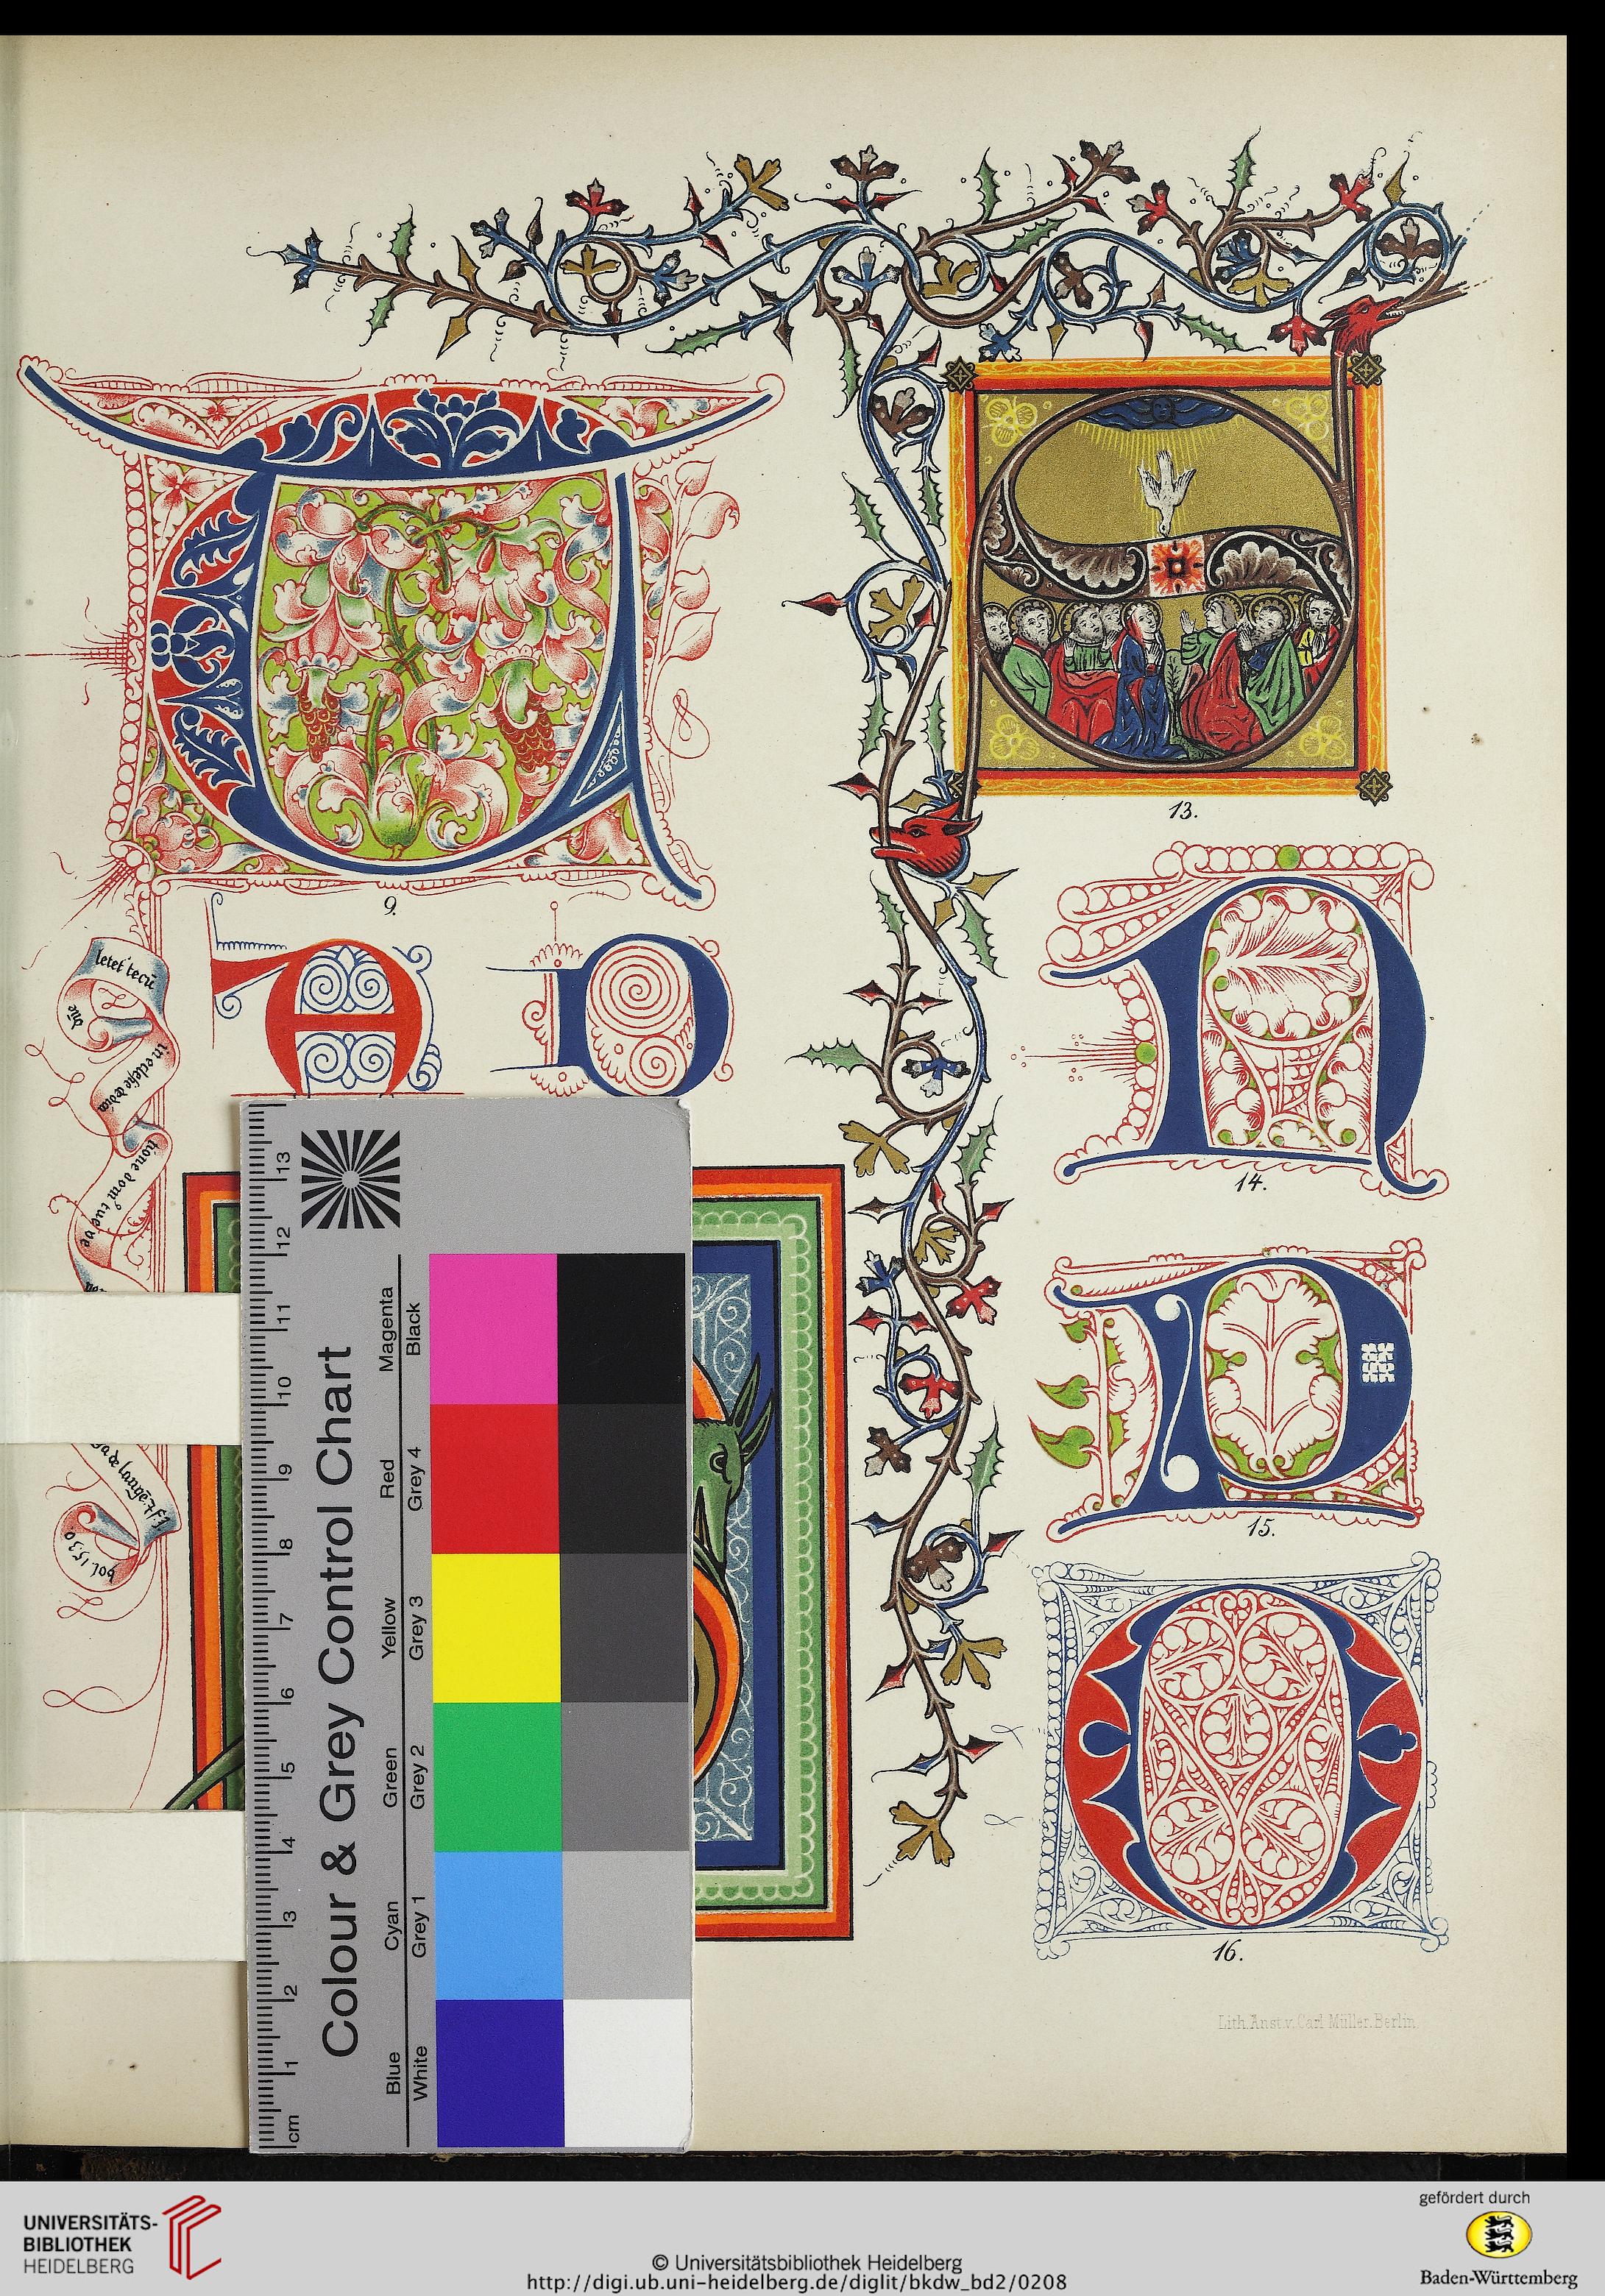 9.
13.
letet' tecū
14.
15.
16.
Lith. Anst. v. Carl Müller. Berlin.
Colour & Grey Control Chart
Magenta
Red
Yellow
Green
Cyan
Blue
Black
Grey 4
Grey 3
Grey 2
Grey 1
White
13
12
11
10
9
8
7
6
5
4
3
2
1
cm
UNIVERSITÄTS-
BIBLIOTHEK
HEIDELBERG
© Universitätsbibliothek Heidelberg
http://digi.ub.uni-heidelberg.de/diglit/bkdw_bd2/0208
gefördert durch
Baden-Württemberg